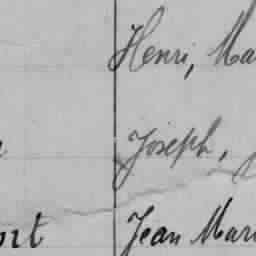 Henri, Ma
Joseph, J
ort Jean Mari